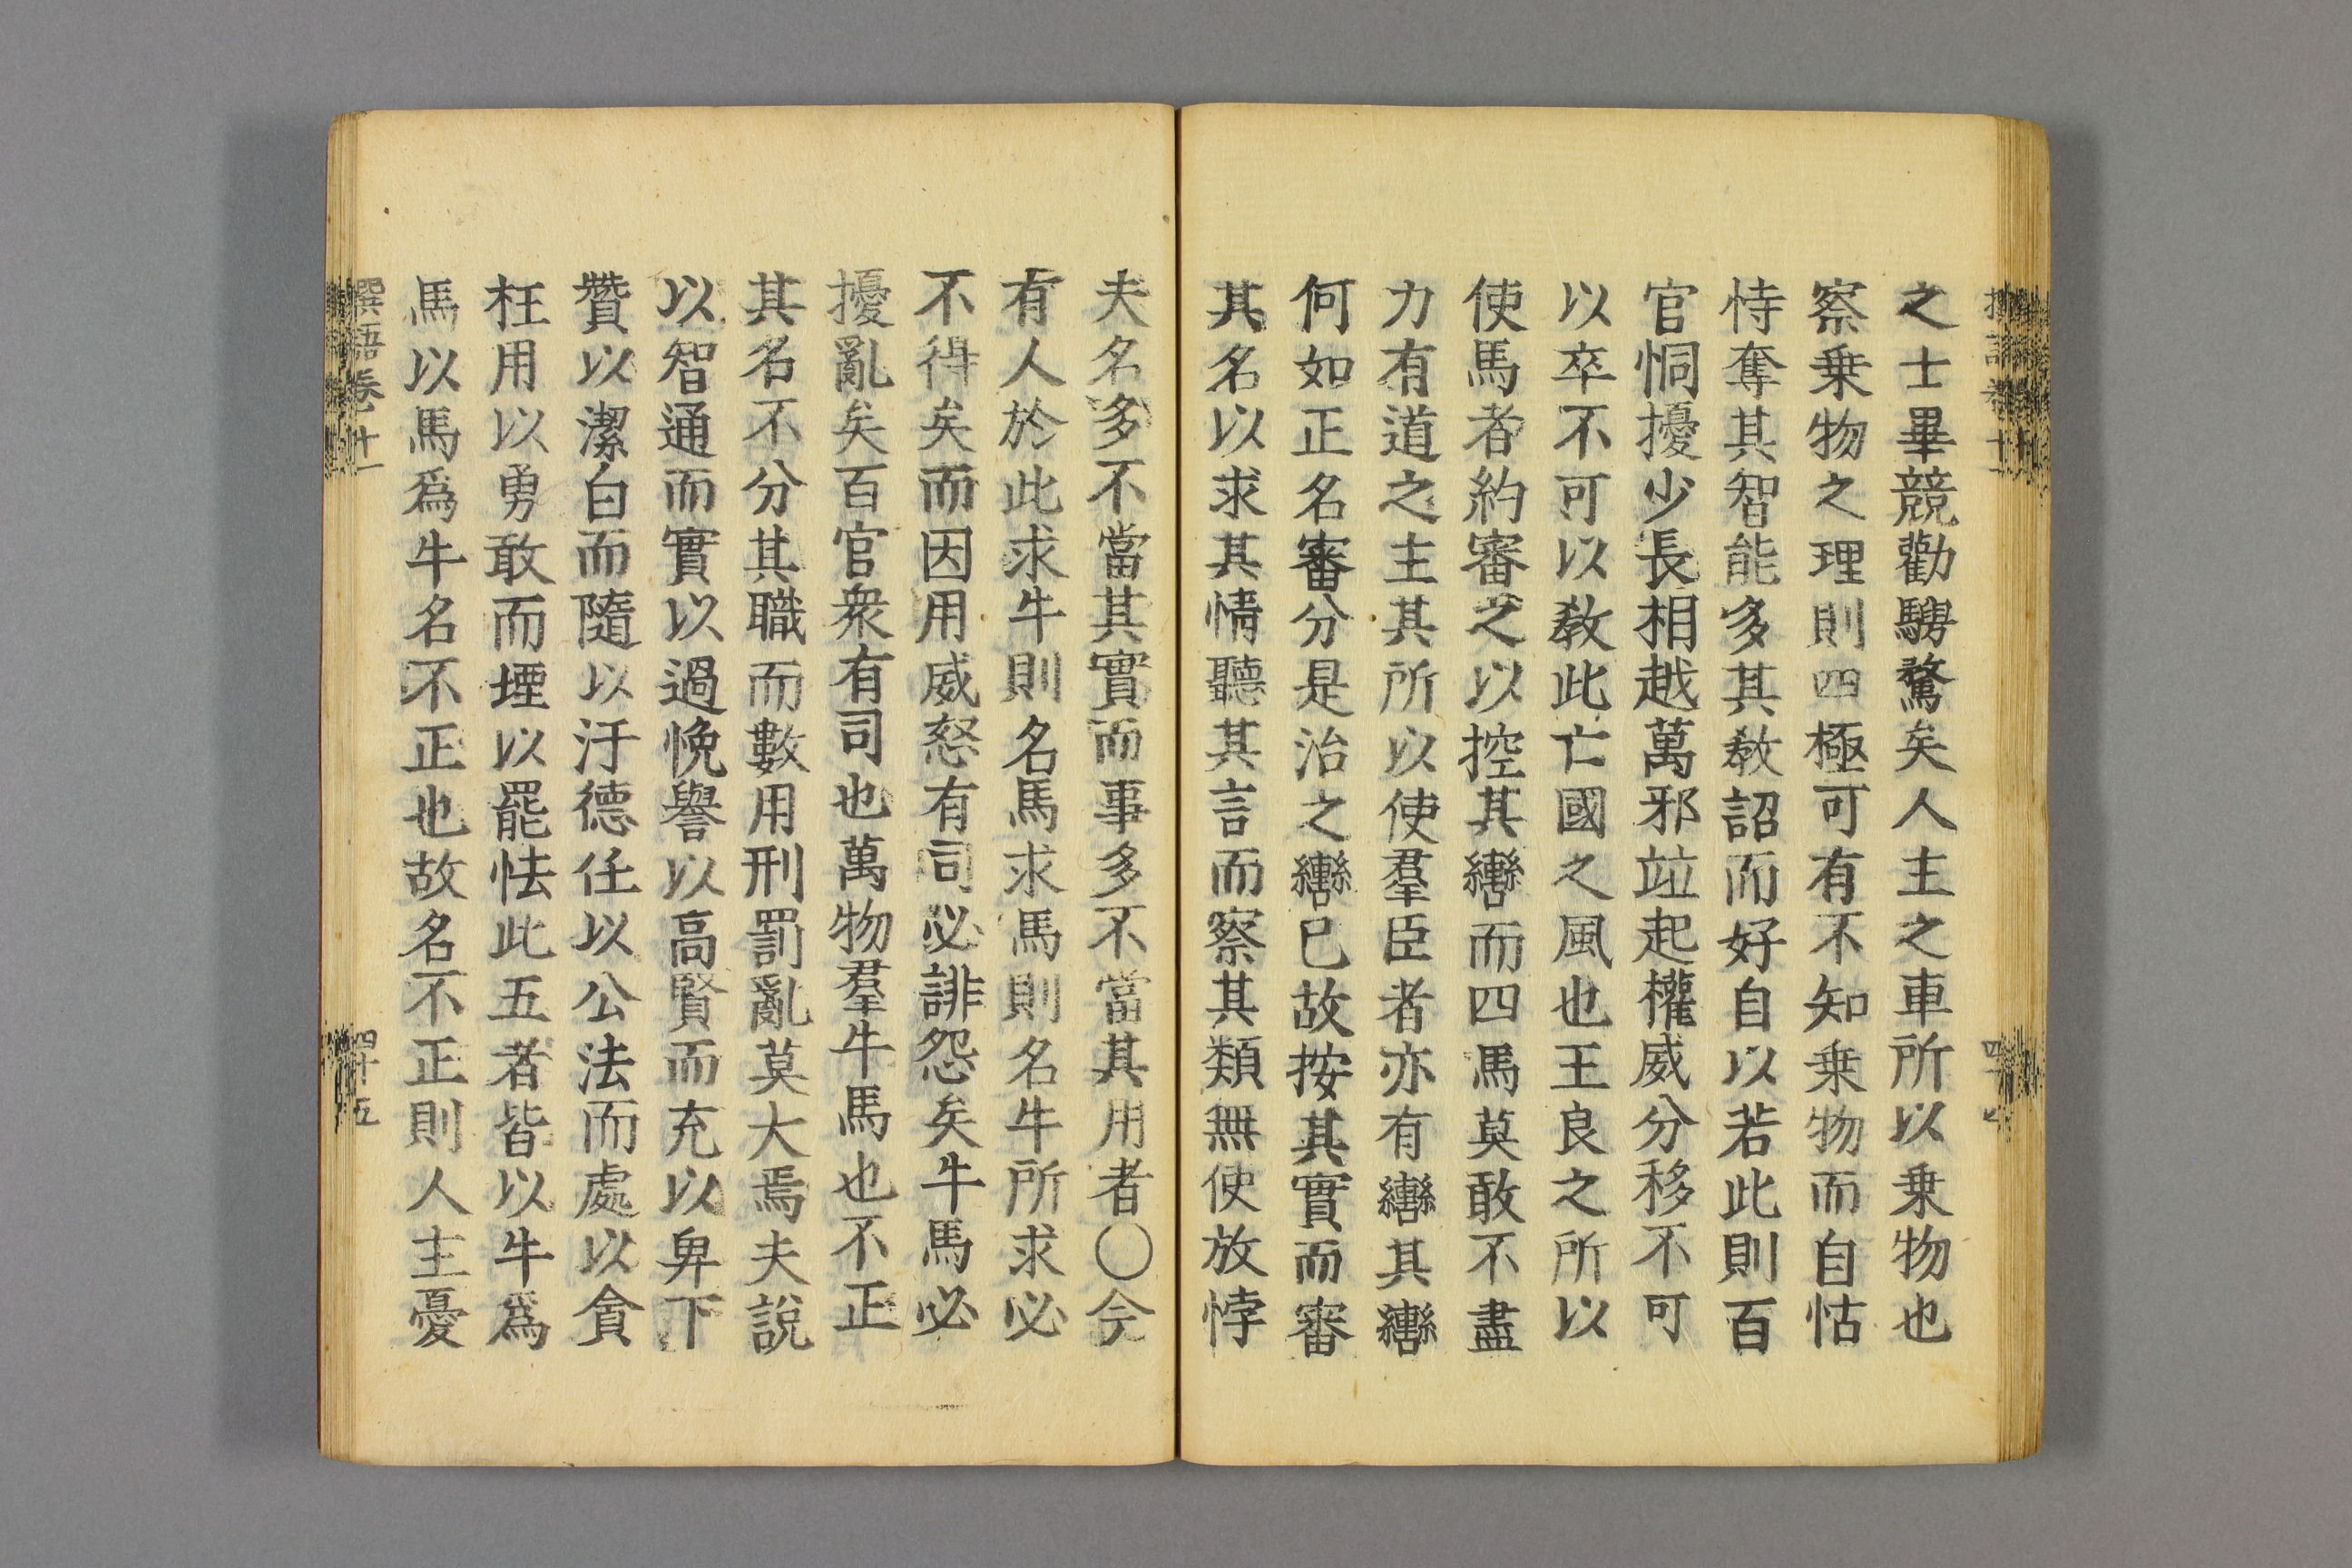 之士畢競勸騁騖矣人主之車所以乗物也
察乗物之理則四極可有不知乗物而自怙
恃奪其智能多其敎詔而好自以若此則百
官恫擾少長相越萬邪竝起權威分移不可
以卒不可以敎此亡國之風也王良之所以
使馬者約審之以控其轡而四馬莫敢不盡
力有道之主其所以使羣臣者亦有轡其轡
何如正名審分是治之轡已故按其實而審
其名以求其情聽其言而察其類無使放悖
夫名多不當其實而事多不當其用者〇今
有人於此求牛則名馬求馬則名牛所求必
不得矣而因用威怒有司必誹怨矣牛馬必
擾亂矣百官衆有司也萬物羣牛馬也不正
其名不分其職而數用刑罰亂莫大焉夫說
以智通而實以過悗譽以高賢而充以卑下
贊以潔白而隨以汙德任以公法而處以貪
枉用以勇敢而堙以罷怯此五者皆以牛爲
馬以馬爲牛名不正也故名不正則人主憂
撰語卷十一
四十五